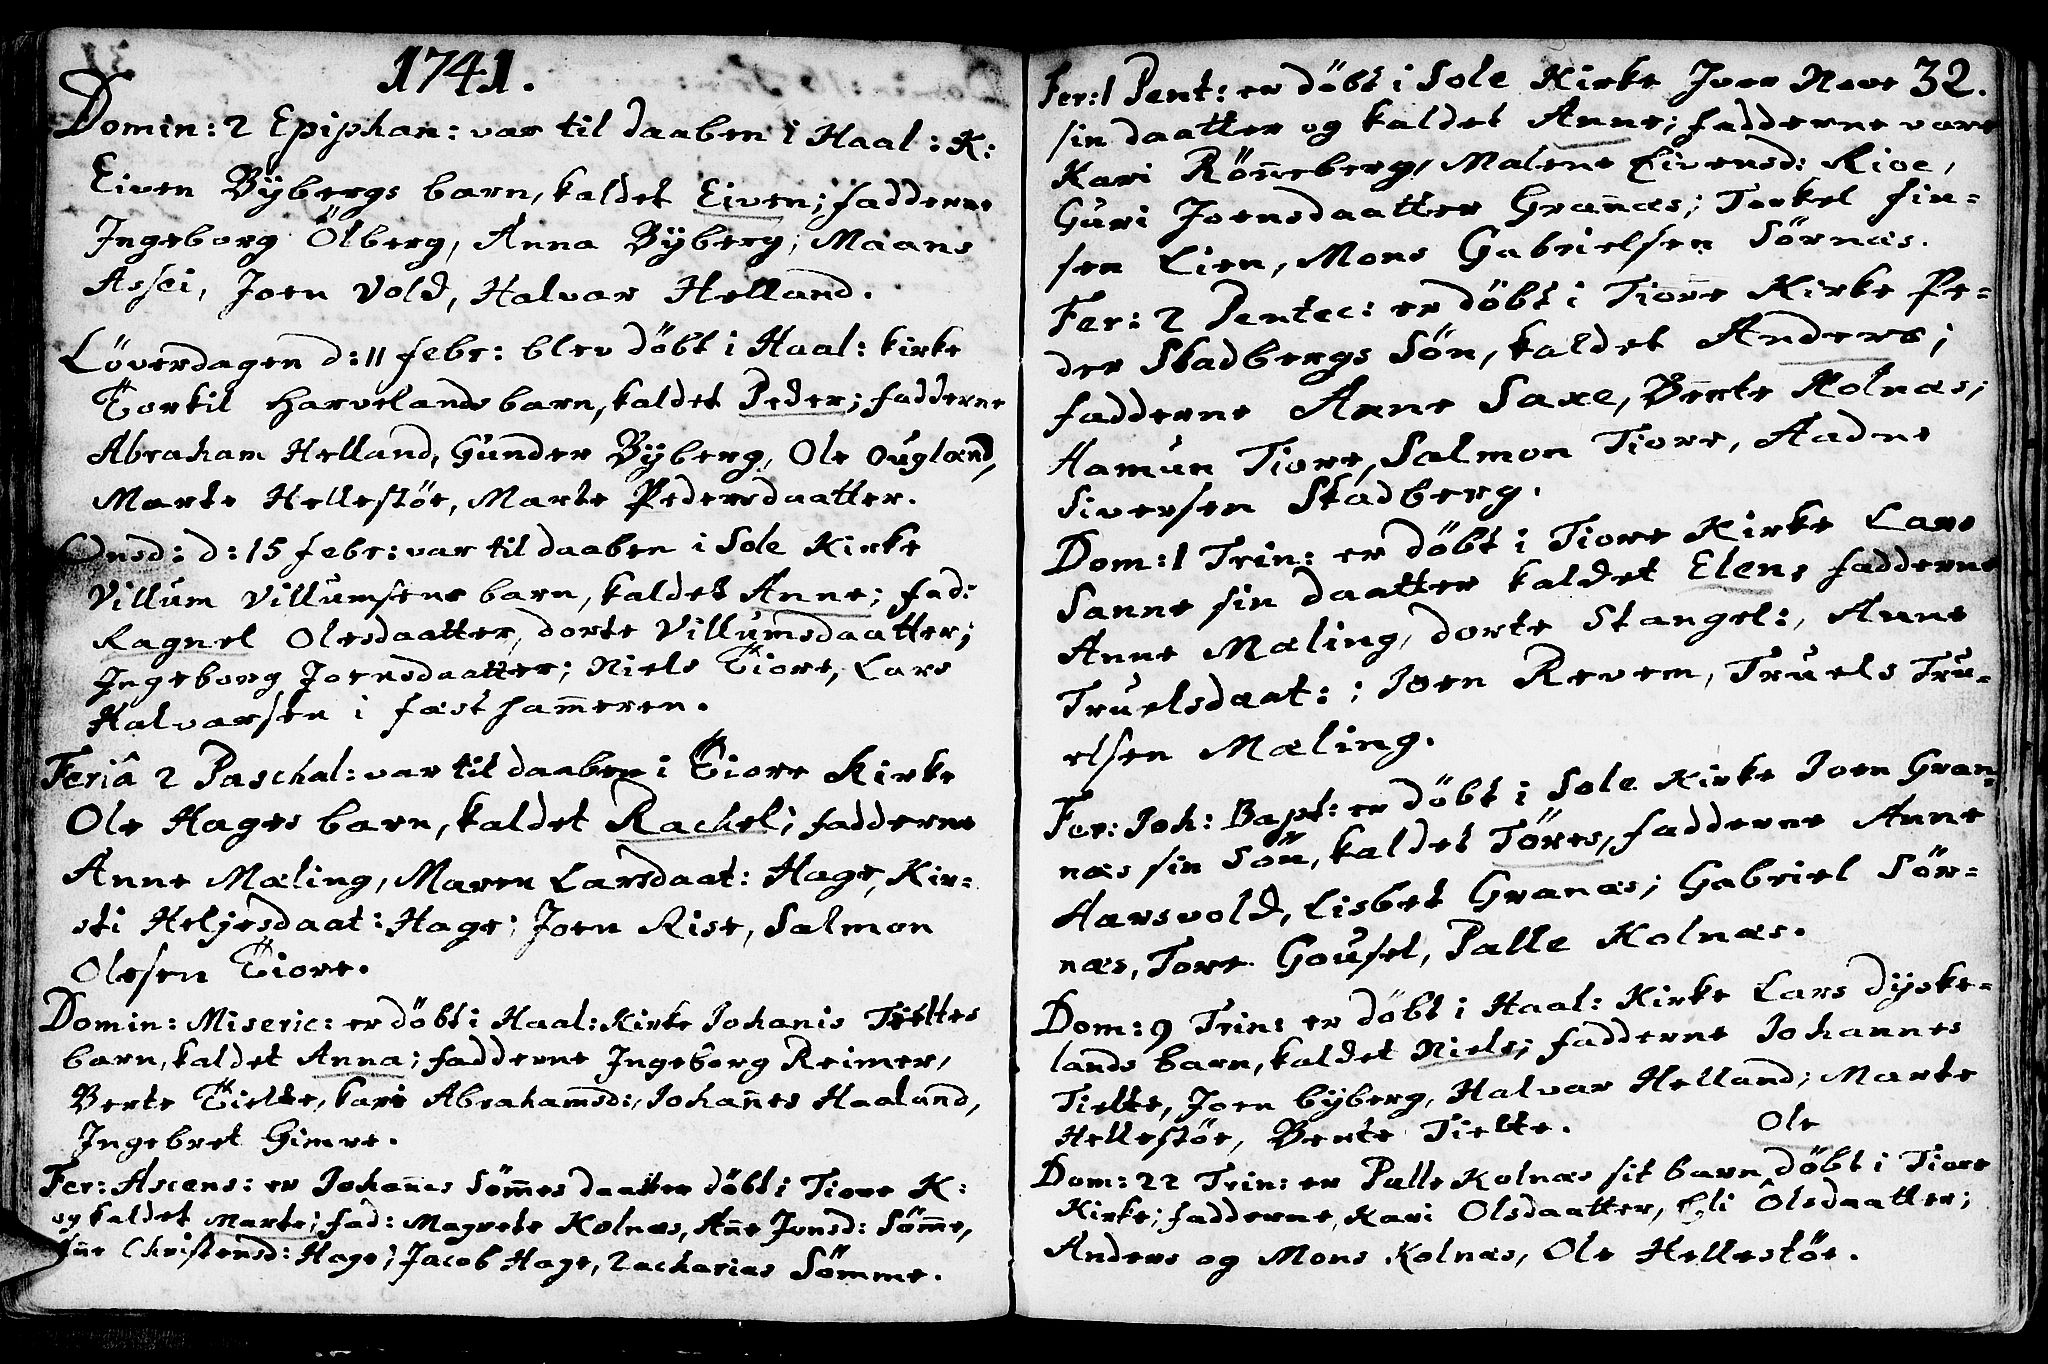 1741.
Domin: 2 Epiphan: var til daaben i Haal: K:
Eiven Bÿbergs barn, kaldet Eiven; fadderne
Ingeborg Ölberg, Anna Bÿberg; Maans
Assei, Joen Vold, Halvar Helland.
Löverdagen d: 11 febr: blev döbt i Haal: kirke
Torkil Harvelands barn, kaldet Peder; fadderne
Abraham Helland, Gunder Bÿberg, Ole Ougland,
Marte Hellestöe, Marte Pedersdaatter.
Onsd: d: 15 febr: var til daaben i Sole Kirke
Villum Villumsens barn, kaldet Anne; fad:
Ragnel Olesdaatter, dorte Villumsdaatter;
Ingeborg Joensdaatter; Niels Tiore, Lars
Halvarsen i fæstham̅eren.
Feriâ 2 Paschal: var til daaben i Tiore Kirke
Ole Hages barn, kaldet Rachel; fadderne
Anne Mæling, Maren Larsdaat: Hage, Kir=
sti Heljesdaat: Hage; Joen Rise, Salmon
Olesen Tiore.
Domin: Miseric: er döbt i Haal: Kirke Johanis Tieltes
barn, kaldet Anna; fadderne Ingeborg Reimer,
Berte Tielte, kari Abrahamsd:, Johan̅es Haaland,
Ingebret Gimre.
Fer: Ascens: er Johan̅es Söm̅es daatter döbt i Tiore K:
og kaldet Marte; fad: Magrete Kolnæs, An̅e Jonsd: Söm̅e,
An̅e Christensd: Hage; Jacob Hage, Zacharias Sömme.
32.
Fer: 1 Pent: er döbt i Sole Kirke Iver Nore
sin daatter og kaldet Anne; fadderne vare
Kari Rön̅eberg, Malene Eivensd: Rioe,
Guri Joensdaatter Gran̅æs; Torkel fin=
sen Lien, Mons Gabrielsen Sörnæs.
Fer: 2 Pentec: er döbt i Tiore Kirke Pe=
der Skadbergs Sön, kaldet Anders;
fadderne Anne Saxe, Bente Kolnæs;
Hamun Tiore, Salmon Tiore, Aadne
Siversen Skadberg.
Dom: 1 Trin: er döbt i Tiore Kirke Lars
Sanne sin daatter kaldet Elen; fadderne
Anne Mæling, dorte Stangel:, Anne
Truelsdaat:; Joen Revem, Truels Tru=
elsen Mæling.
Fer: Joh: Bapt: er döbt i Sole Kirke Joen Gran=
næs sin Sön, kaldet Töres, fadderne Anne
Harsvold, Lisbet Granæs; Gabriel Sör=
næs, Tore Gousel, Palle Kolnæs.
Dom: 9 Trin: er döbt i Haal: Kirke Lars dÿske=
lands barn, kaldet Niels; fadderne Johannes
Tielte, Joen bÿberg, Halvar Helland; Marte
Hellestöe, Bente Tielte.
Ole
Dom: 22 Trin: er Palle Kolnæs sit barn döbt i Tiore
Kirke; fadderne, Kari Olsdaatter, Eli Olsdaatter;
Anders og Mons Kolnæs, Ole Hellestöe.